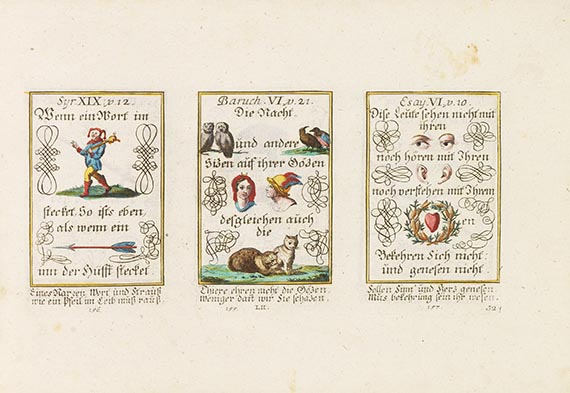 Syr XIX. v. 12.
Wenn ein Wort im
stecket. So ists eben
als wenn ein
inn der Hüfft stecket
Eines Narren Wort und Strauß
wie ein Pfeil im Leib muß rauß.
156.
Baruch. VI. v. 21.
Die Nacht
und andere
Sizen auf ihrer Gözen
desgleichen auch
die
ehren nicht die Gözen
Weniger daß wir Sie schäzen.
LII.
Esay. VI. v. 10.
Dise Leüte sehen nicht mit
ihren
noch hören mit Ihren
noch verstehen mit Ihrem
en
Bekehren Sich nicht
und genesen nicht
Sollen Sinn und Herz genesen
Mus bekehrung sein ihr wesen.
157.
52